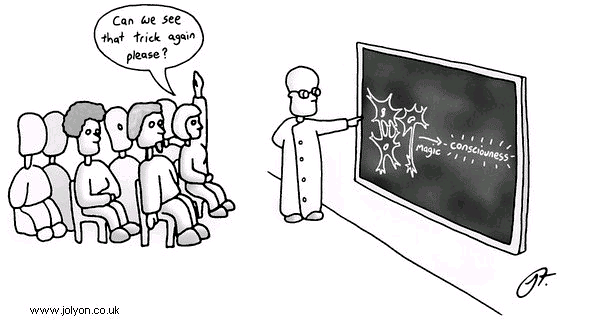 Can we see
that trick again
please?
magic
consciouness
www.jolyon.co.uk